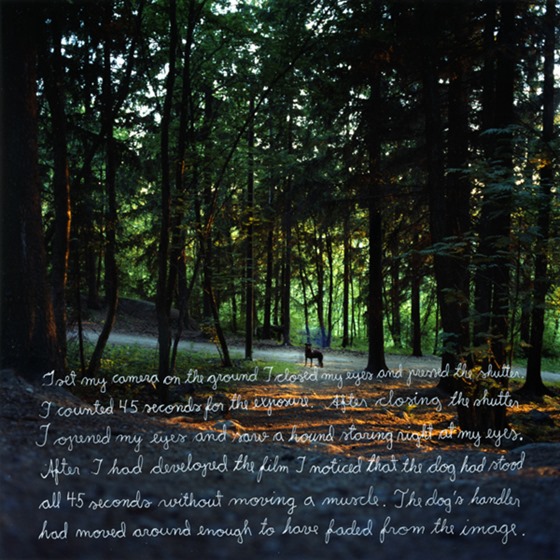 I set my camera on the ground I closed my eyes and pressed the shutter.
I counted 45 seconds for the exposure. After closing the shutter
I opened my eyes and saw a hound staring right at my eyes.
After I had developed the film I noticed that the dog had stood
all 45 seconds without moving a muscle. The dog's handler
had moved around enough to have faded from the image.